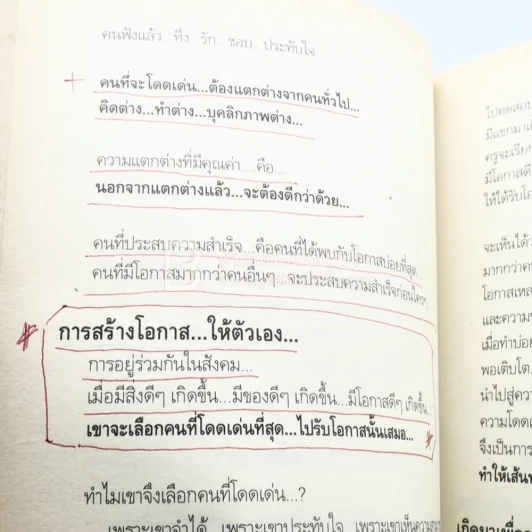 คนฟังแล้ว ทึ่ง รัก ชอบ ประทับใจ
คนที่จะโดดเด่น...ต้องแตกต่างจากคนทั่วไป...
คิดต่าง...ทำต่าง...บุคลิกภาพต่าง...
ความแตกต่างที่มีคุณค่า...คือ...
นอกจากแตกต่างแล้ว...จะต้องดีกว่าด้วย...
คนที่ประสบความสำเร็จ...คือคนที่ได้พบกับโอกาสบ่อยที่สุด
คนที่มีโอกาสมากกว่าคนอื่นๆ...จะประสบความสำเร็จก่อนใครๆ
การสร้างโอกาส...ให้ตัวเอง...
การอยู่ร่วมกันในสังคม...
เมื่อมีสิ่งดีๆ เกิดขึ้น...มีของดีๆ เกิดขึ้น...มีโอกาสดีๆ เกิดขึ้น...
เขาจะเลือกคนที่โดดเด่นที่สุด...ไปรับโอกาสนั้นเสมอ...
ทำไมเขาจึงเลือกคนที่โดดเด่น...?
เพราะเขาจำได้ เพราะเขาประทับใจ เพราะเขาเห็นความ
ไปทดสอบ
มีแขกมา
ครูจะเรีย
มีโอกาสดี
ให้ได้รับโอ
จะเห็นได้ว
มากกว่าค
โอกาสเหล
และความ
เมื่อทำบ่อย
พอเติบโต
นำไปสู่ค
ความโดดเ
จึงเป็นการ
ทำให้เส้นท
เกิดมาเพื่อ